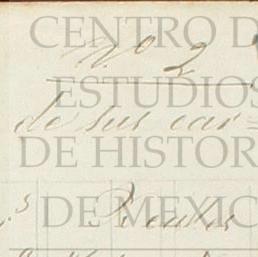 CENTRO D
Nº 2
ESTUDIOS
de sus car=
DE HISTOR
Reales
DE MEXIC